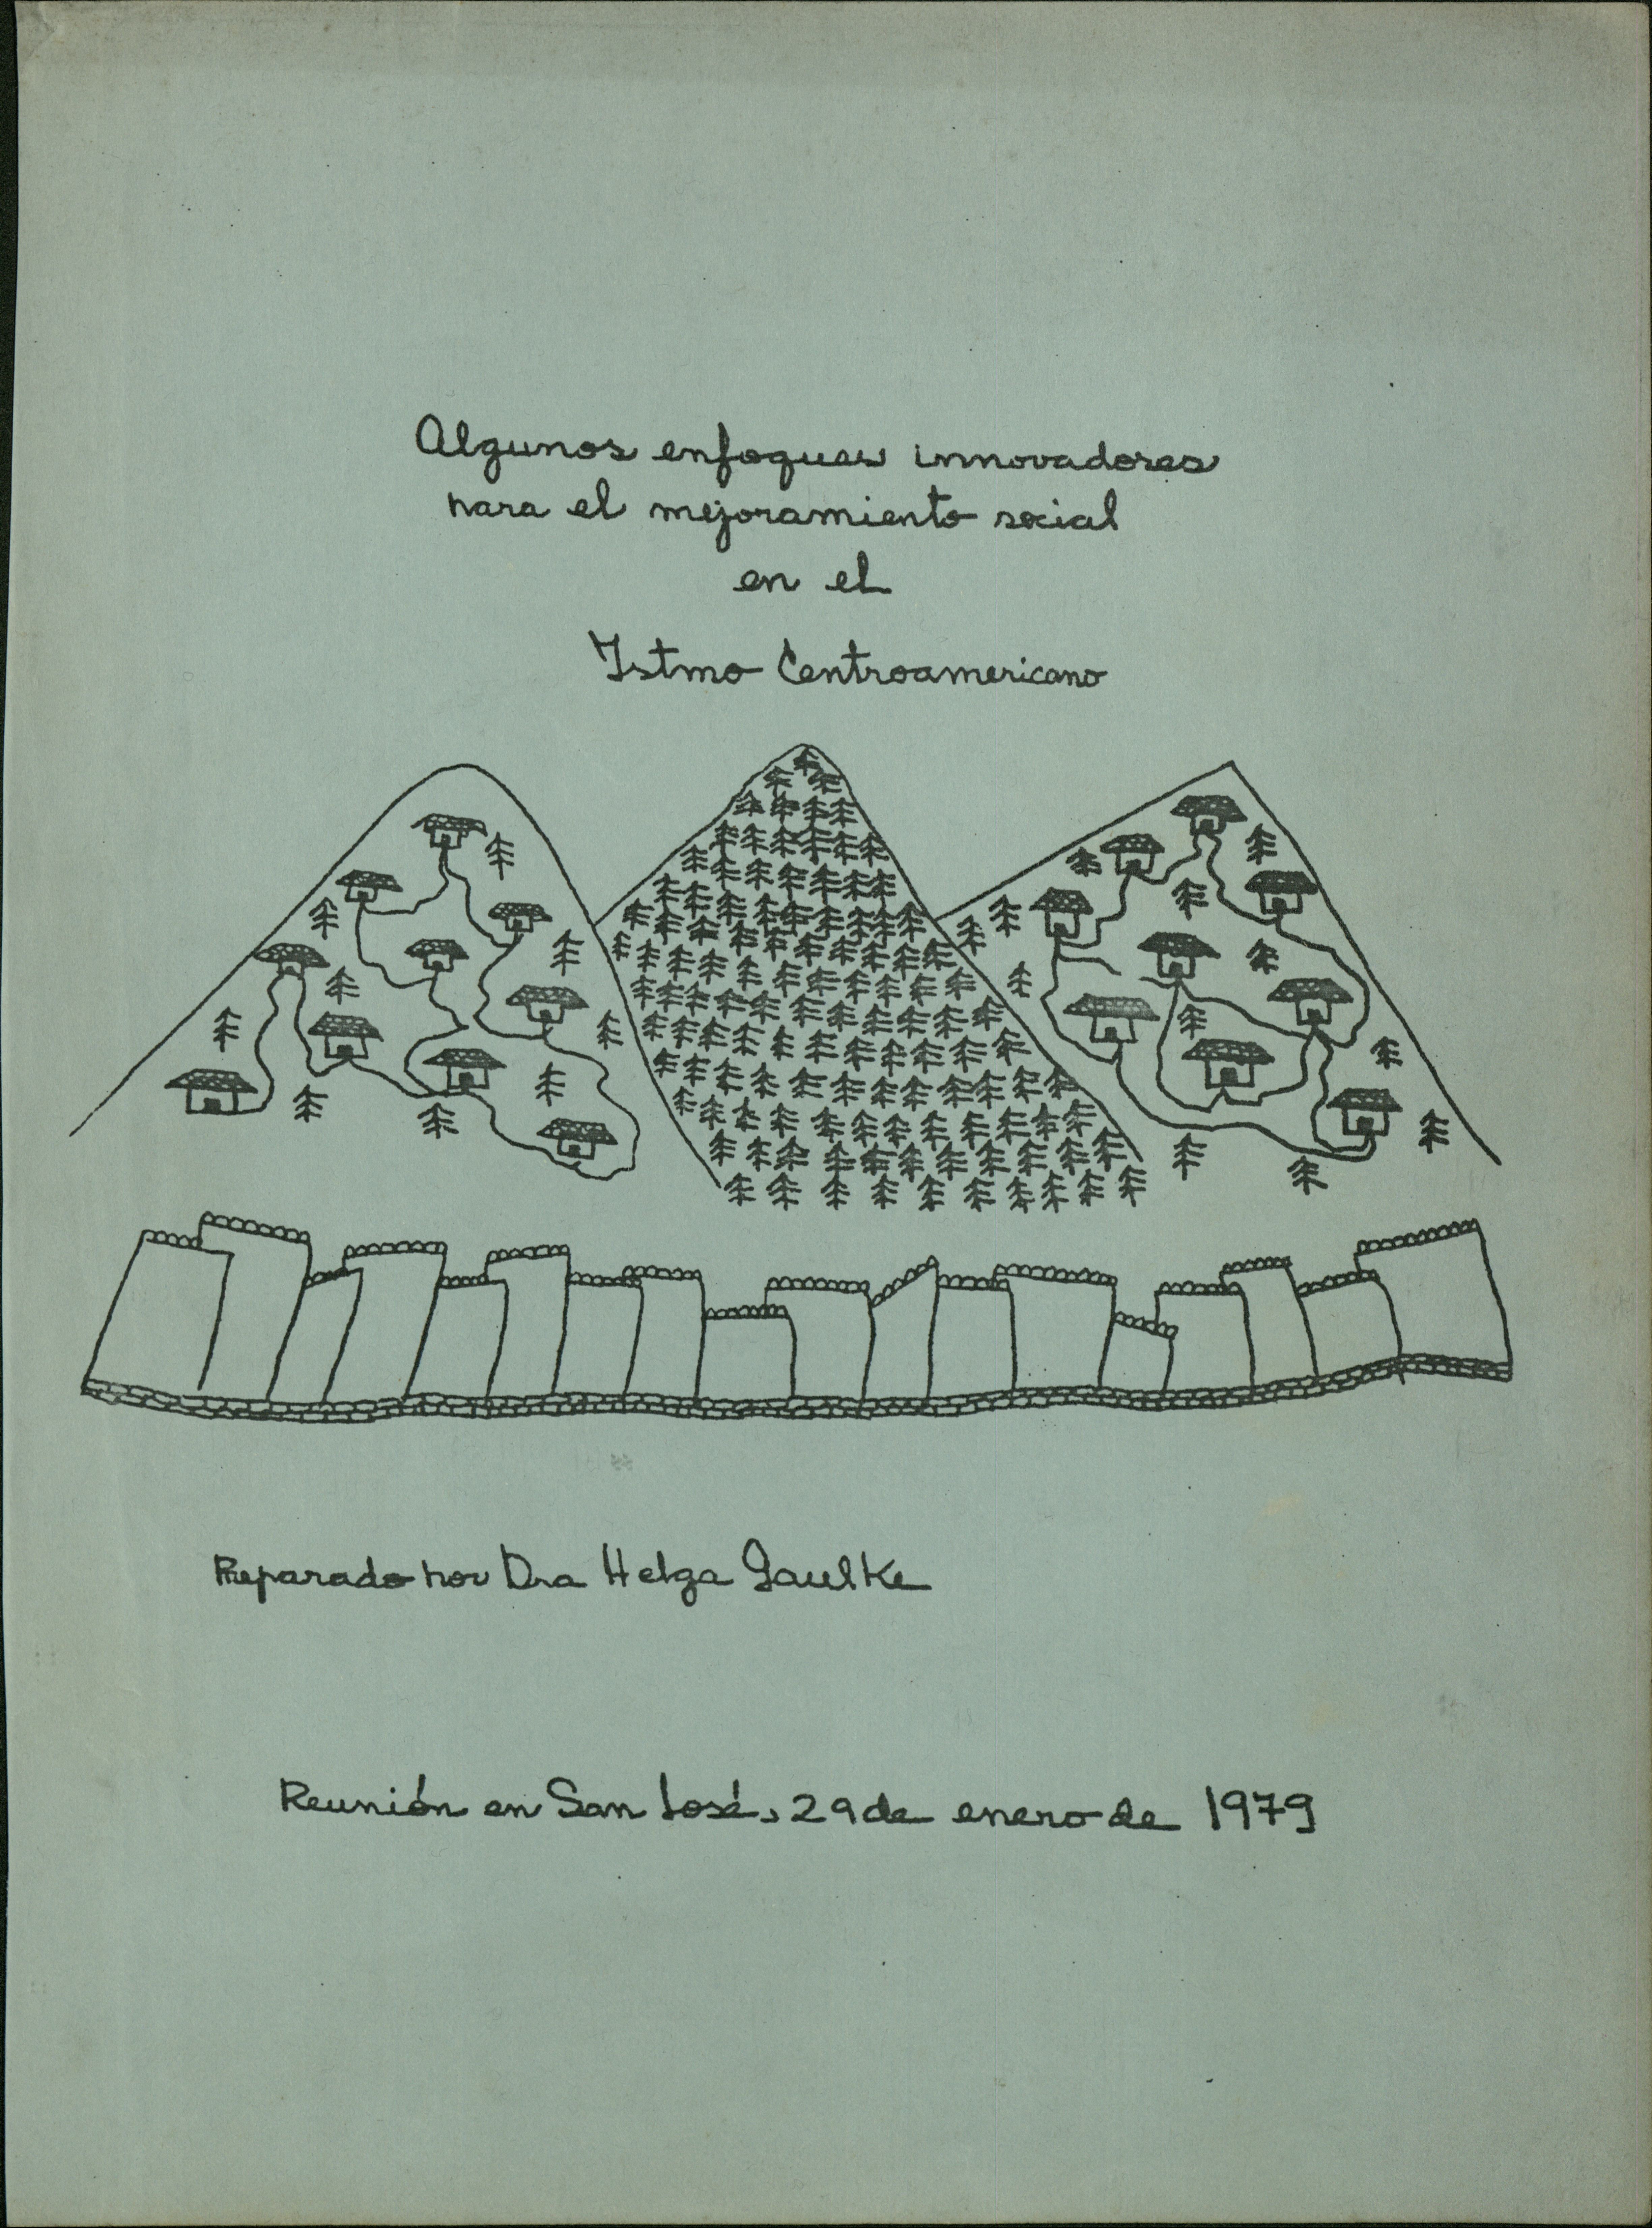 Algunos enfoques innovadores
para el mejoramiento social
en el
Istmo Centroamericano
Preparado por Dra Helga Gaulke
Reunión en San José, 29 de enero de 1979